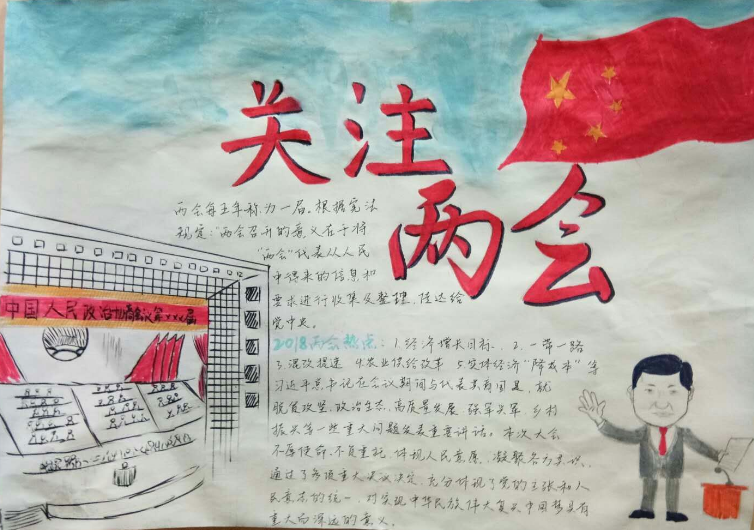 关注
两会
两会每五年称为一届。根据宪法
规定："两会召开的意义在于将
"两会"代表从人民
中得来的信息和
要求进行收集及整理,传达给
党中央。
中国人民政治协商会议第xxx届
2018两会热点：1.经济增长目标. 2.一带一路
3.混改提速 4.农业供给改革 5.实体经济"降成本"等
习近平总书记在会议期间与代表共商国是,就
脱贫攻坚,政治生态,高质量发展 强军兴军,乡村
振兴等一些重大问题发表重要讲话。本次大会
不辱使命,不负重托,体现人民意愿,凝聚各方共识,
通过了多项重大决议决定,充分体现了党的主张和人
民意志的统一,对实现中华民族伟大复兴中国梦具有
重大而深远的意义。